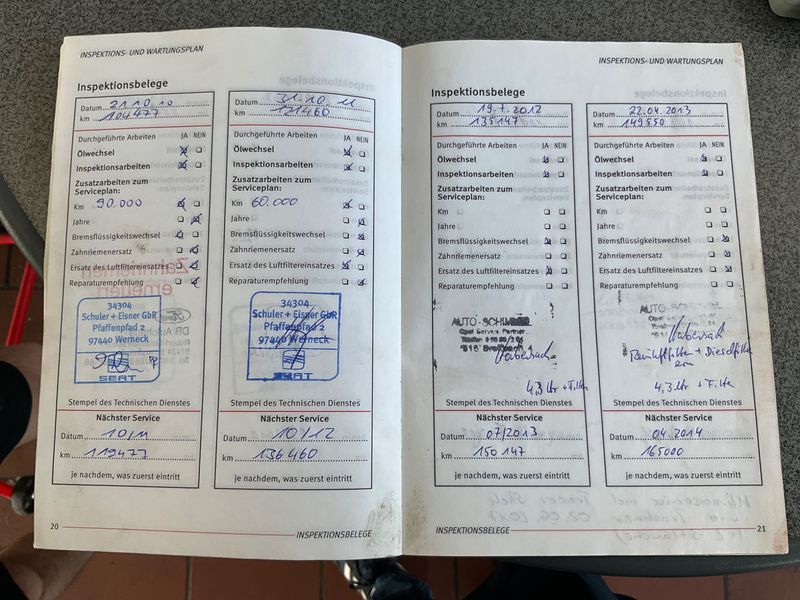 INSPEKTIONS- UND WARTUNGSPLAN
Inspektionsbelege
Datum 21.10.10
km 104477
Durchgeführte Arbeiten JA NEIN
Ölwechsel
Inspektionsarbeiten
Zusatzarbeiten zum
Serviceplan:
Km 90.000
Jahre
Bremsflüssigkeitswechsel
Zahnriemenersatz
Ersatz des Luftfiltereinsatzes
Reparaturempfehlung
34304
Schuler + Eisner GbR
Pfaffenpfad 2
97440 Werneck
SEAT
Stempel des Technischen Dienstes
Nächster Service
Datum 10/11
km 119477
je nachdem, was zuerst eintritt
Datum 31.10.11
km 121460
Durchgeführte Arbeiten JA NEIN
Ölwechsel
Inspektionsarbeiten
Zusatzarbeiten zum
Serviceplan:
Km 60.000
Jahre
Bremsflüssigkeitswechsel
Zahnriemenersatz
Ersatz des Luftfiltereinsatzes
Reparaturempfehlung
34304
Schuler + Eisner GbR
Pfaffenpfad 2
97440 Werneck
SEAT
Stempel des Technischen Dienstes
Nächster Service
Datum 10/12
km 136460
je nachdem, was zuerst eintritt
20
INSPEKTIONSBELEGE
INSPEKTIONS- UND WARTUNGSPLAN
Inspektionsbelege
Datum 19.7.2012
km 135147
Durchgeführte Arbeiten JA NEIN
Ölwechsel
Inspektionsarbeiten
Zusatzarbeiten zum
Serviceplan:
Km
Jahre
Bremsflüssigkeitswechsel
Zahnriemenersatz
Ersatz des Luftfiltereinsatzes
Reparaturempfehlung
Opel Service Partner
4,3 ltr + Filter
Stempel des Technischen Dienstes
Nächster Service
Datum 07/2013
km 150147
je nachdem, was zuerst eintritt
Datum 22.04.2013
km 149850
Durchgeführte Arbeiten JA NEIN
Ölwechsel
Inspektionsarbeiten
Zusatzarbeiten zum
Serviceplan:
Km
Jahre
Bremsflüssigkeitswechsel
Zahnriemenersatz
Ersatz des Luftfiltereinsatzes
Reparaturempfehlung
+ Dieselfilter
4,3 ltr + Filter
Stempel des Technischen Dienstes
Nächster Service
Datum 04.2014
km 165000
je nachdem, was zuerst eintritt
INSPEKTIONSBELEGE
21